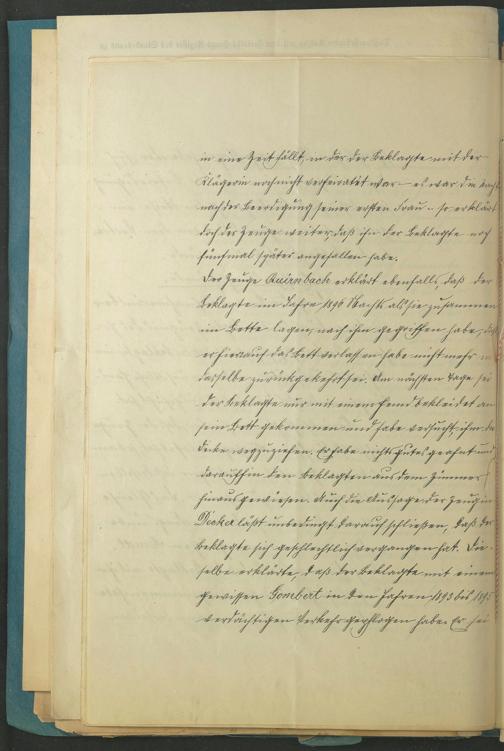 in eine Zeit fällt, in der der Beklagte mit der
Klägerin noch nicht verheiratet war – es war die Nacht
nach der Beerdigung seiner ersten Frau – so erklärt
doch der Zeuge weiter, daß ihn der Beklagte noch
fünfmal später angefallen habe.
Der Zeuge Quirnbach erklärt ebenfalls, daß der
Beklagte im Jahre 1896 Nachts als sie zusammen
im Bette lagen, nach ihm gegriffen habe, daß
er hierauf das Bett verlassen habe nicht mehr in
dasselbe zurückgekehrt sei. Am nächsten Tage sei
der Beklagte nur mit einem Hemd bekleidet an
sein Bett gekommen und habe versucht, ihm die
Decke wegzuziehen. Er habe nichts gutes geahnt und
daraufhin den Beklagten aus dem Zimmer
hinausgewiesen. Auch die Aussage der Zeugin
Dicker läßt unbedingt darauf schließen, daß der
Beklagte sich geschlechtlich vergangen hat. Die-
selbe erklärte, daß der Beklagte mit einem
gewissen Gombert in den Jahren 1893 bis 1895
verdächtigen Verkehr gepflogen habe. Er sei